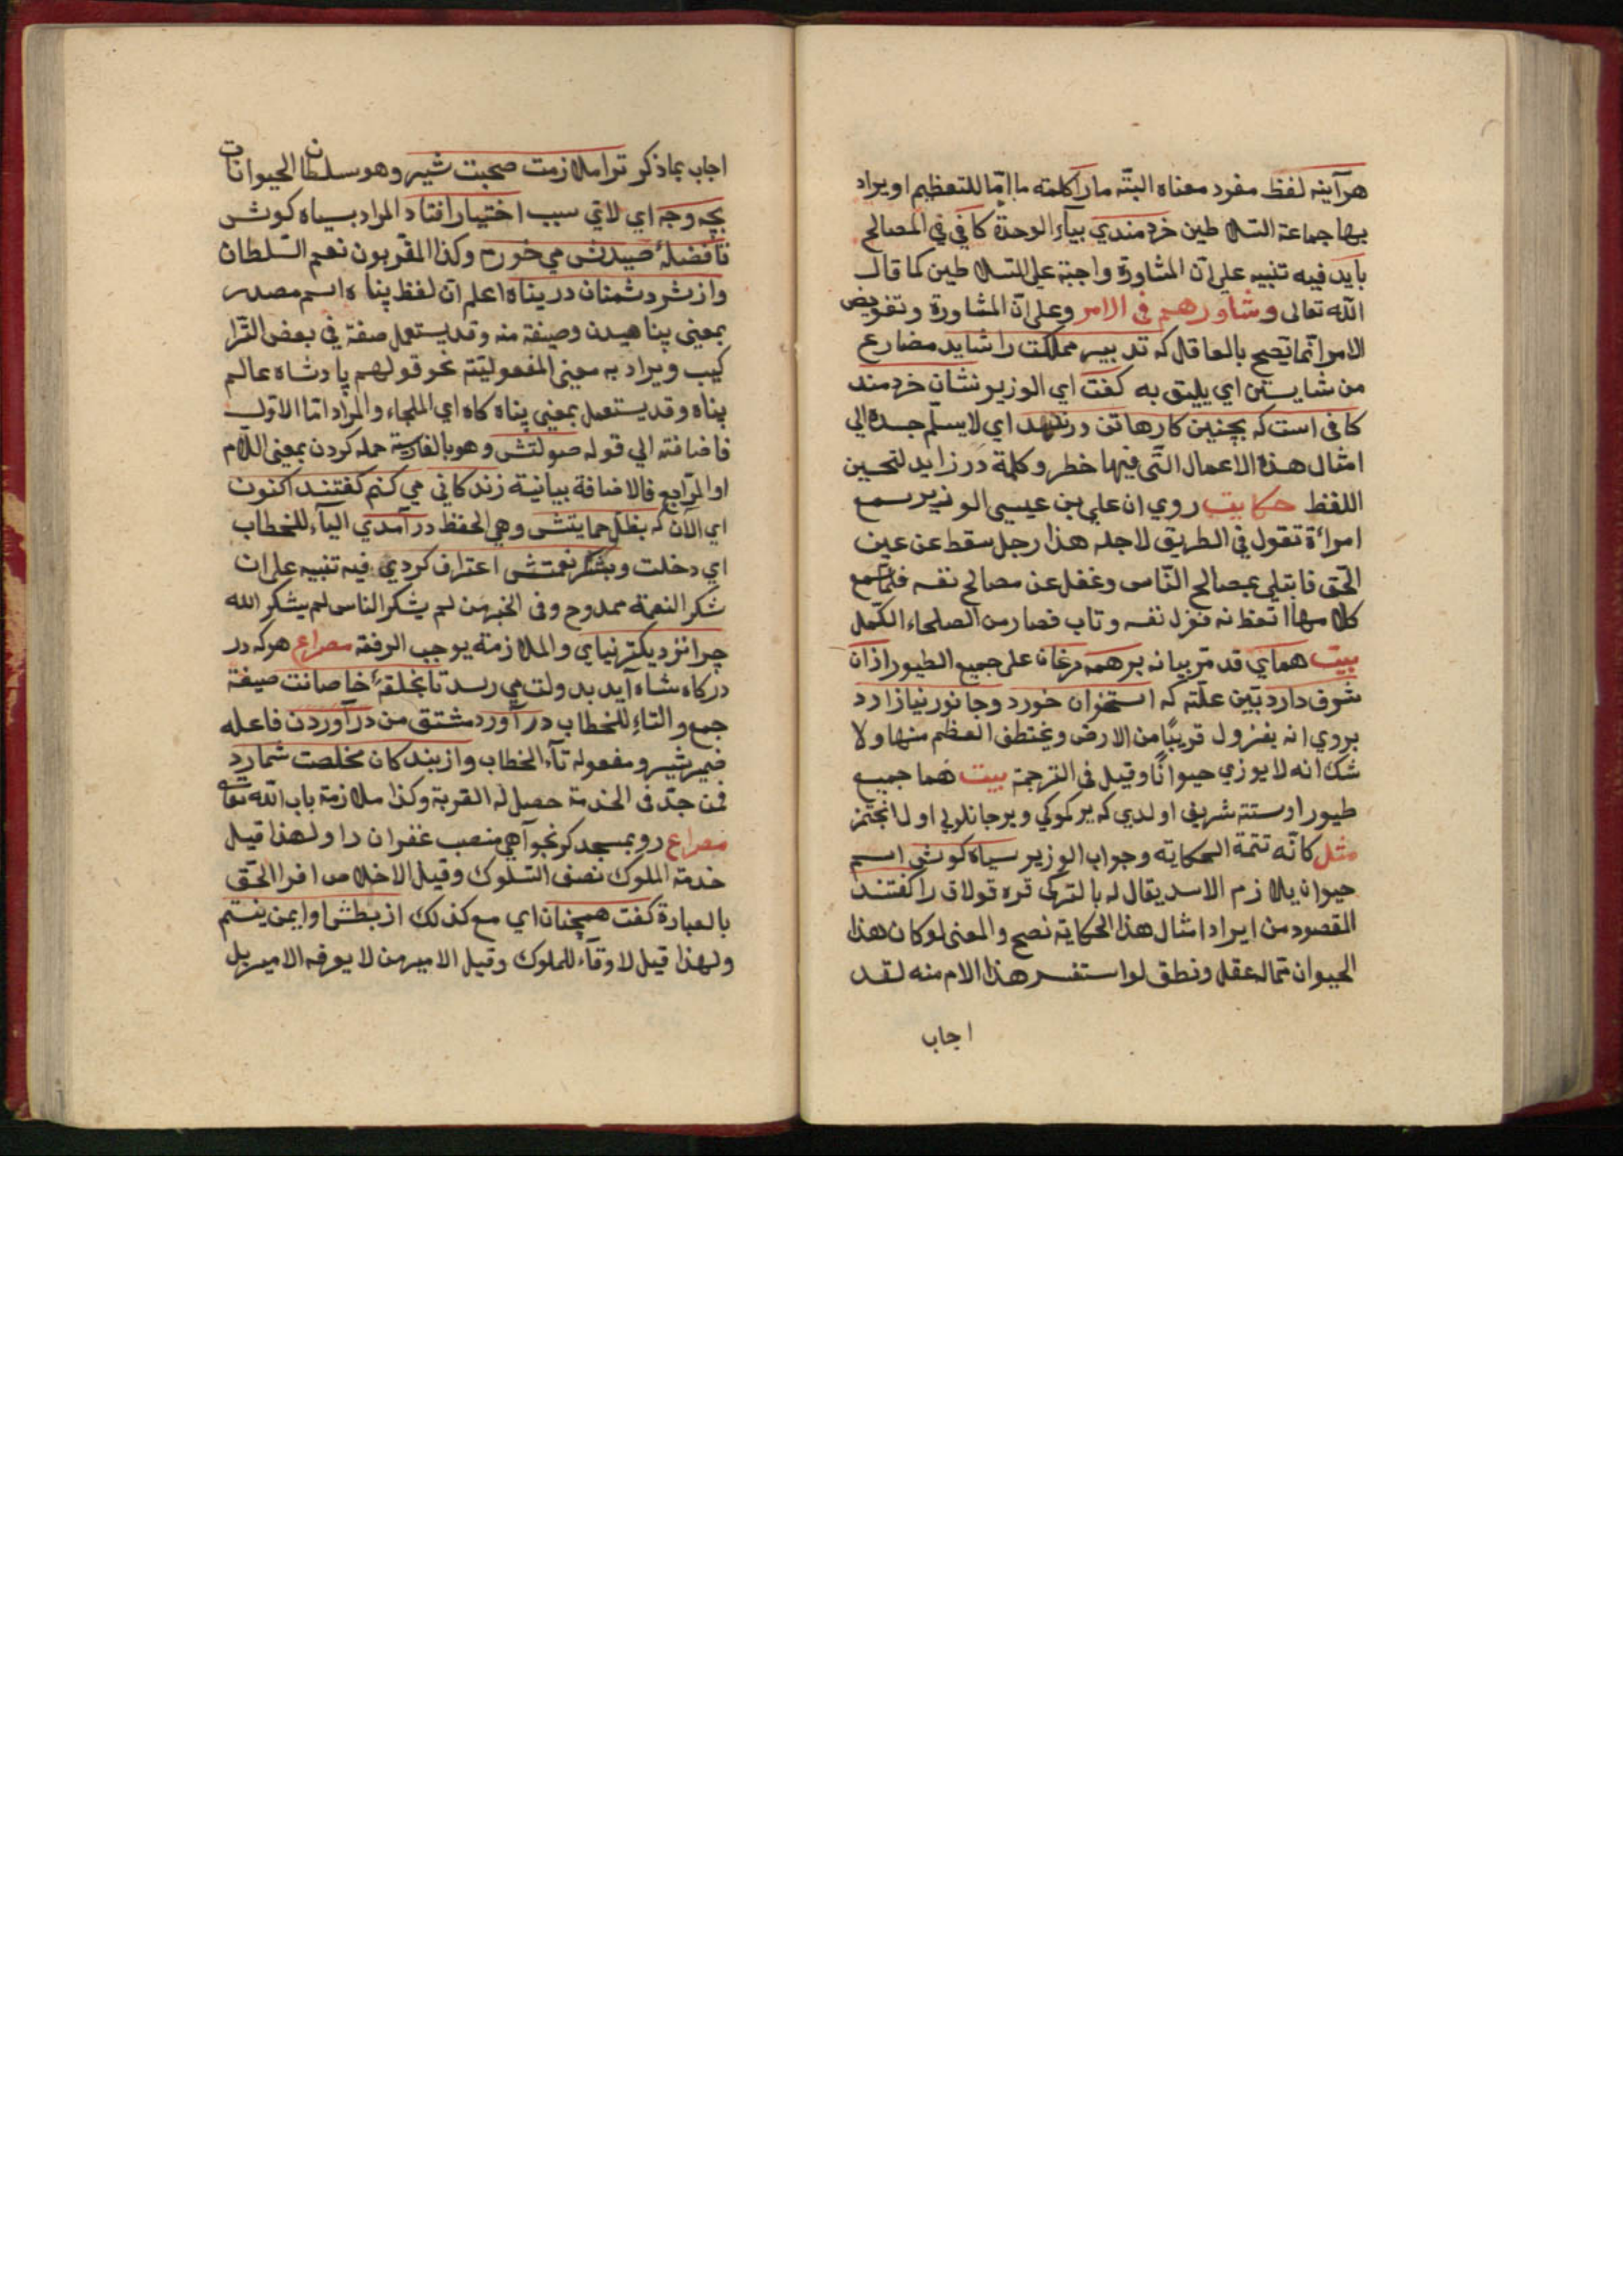 هرآينه لفظ مفرد معناه البتّه مارا كلمته ما امّا للتعظيم او يراد
بها جماعة السّلاطين خردمندي بياء الوحدة كافي في المصالح
بايد فيه تنبيه على انّ المشاورة واجبة على السّلاطين كما قال
اللّه تعالى وشاورهم في الامر وعلى انّ المشاورة وتفويض
الامر انّما يصحّ بالعاقل كه تدبير مملكت را شايد مضارع
من شايستن اي يليق به كفت اي الوزير نشان خردمند
كافي است كه بچنين كارها تن درندهد اي لا يسلّم جسده الي
امثال هذه الاعمال الّتي فيها خطر وكلمة در زايد لتحسين
اللفظ حكايت روي ان علي بن عيسى الوزير سمع
امرأة تقول في الطريق لاجله هذا رجل سقط عن عين
الحّق فابتلي بمصالح النّاس وغفل عن مصالح نفسه فلمّا سمع
كلامها اتعظ نه فزل نفسه وتاب فصار من الصلحاء الكمّل
بيت هماي قد مرّ بيانه بر همه مرغان على جميع الطيور ازان
شرف دارد بيّن علّته كه استخوان خورد وجانور نيازارد
يروي انه ينزل قريبًا من الارض ويختطف العظم منها ولا
شك انه لا يوزي حيوانًا وقيل في الترجمة بيت هما جميع
طيور اوستنه شريف اولدي كه ير كموكي وير جانلويى اول انجتمز
مثل كانّه تتمة الحكايه وجواب الوزير سياه كوش اسم
حيوان يلازم الاسد يقال له بالتركى قره قولاق را كفتند
المقصود من ايراد امثال هذا الحكاية نصح والمعنى لو كان هذا
الحيوان ممّا له عقل ونطق لو استفسر هذا الامر منه لقد
اجاب
اجاب بما ذكر ترا ملازمت صحبت شير وهو سلطان الحيوانات
بچه وجه اي لاي سبب اختيار افتاد المراد بسياه كوش
تا فضلهٔ صيدش مي خورم وكذا المقرّبون نعم السّلطان
واز شر دشمنان در پناه اعلم انّ لفظ پناه اسم مصدر
بمعنى پناهيدن وصيغة منه وقد يستعمل صفة في بعض التّرا
كيب ويراد به معنى المفعوليّته نحو قولهم پادشاه عالم
پناه وقد يستعمل بمعنى پناه كاه اي الملجاء والمراد امّا الاوّل
فاضافته الي قوله صولتش وهو بالفارسية حمله كردن بمعنى اللام
او الرّابع فالاضافة بيانية زندكاني مي كنم كفتند اكنون
اي الآن كه بظلّ حمايتش وهي الحفظ در آمدي الياء للخطاب
اي دخلت وبشكر نعمتش اعتراف كردي فيه تنبيه على ان
شكر النعمة ممدوح وفى الخبر من لم يشكر الناس لم يشكر الله
چرا نزديكتر نياي والملازمة يوجب الرفقة مصراع هركه در
دركاه شاه آيد بدولت مي رسد تا بحلقهٔ خاصانت صيغة
جمع والتاء للخطاب در آورد مشتق من در آوردن فاعله
ضمير شير ومفعوله تآء الخطاب واز بندكان مخلصت شمارد
فمن جدّ فى الخدمة حصل له القربة وكذا ملازمة باب اللّه تعالى
مصراع رو بمسجد كر نجواهي منصب غفران را ولهذا قيل
خدمة الملوك نصف السّلوك وقيل الاخلاص افرا الحّق
بالعبادة كفت همچنان اي مع كذلك از بطش او ايمن نيستم
ولهذا قيل لا وفآء للملوك وقيل الامير من لا يعرفه الامير بل